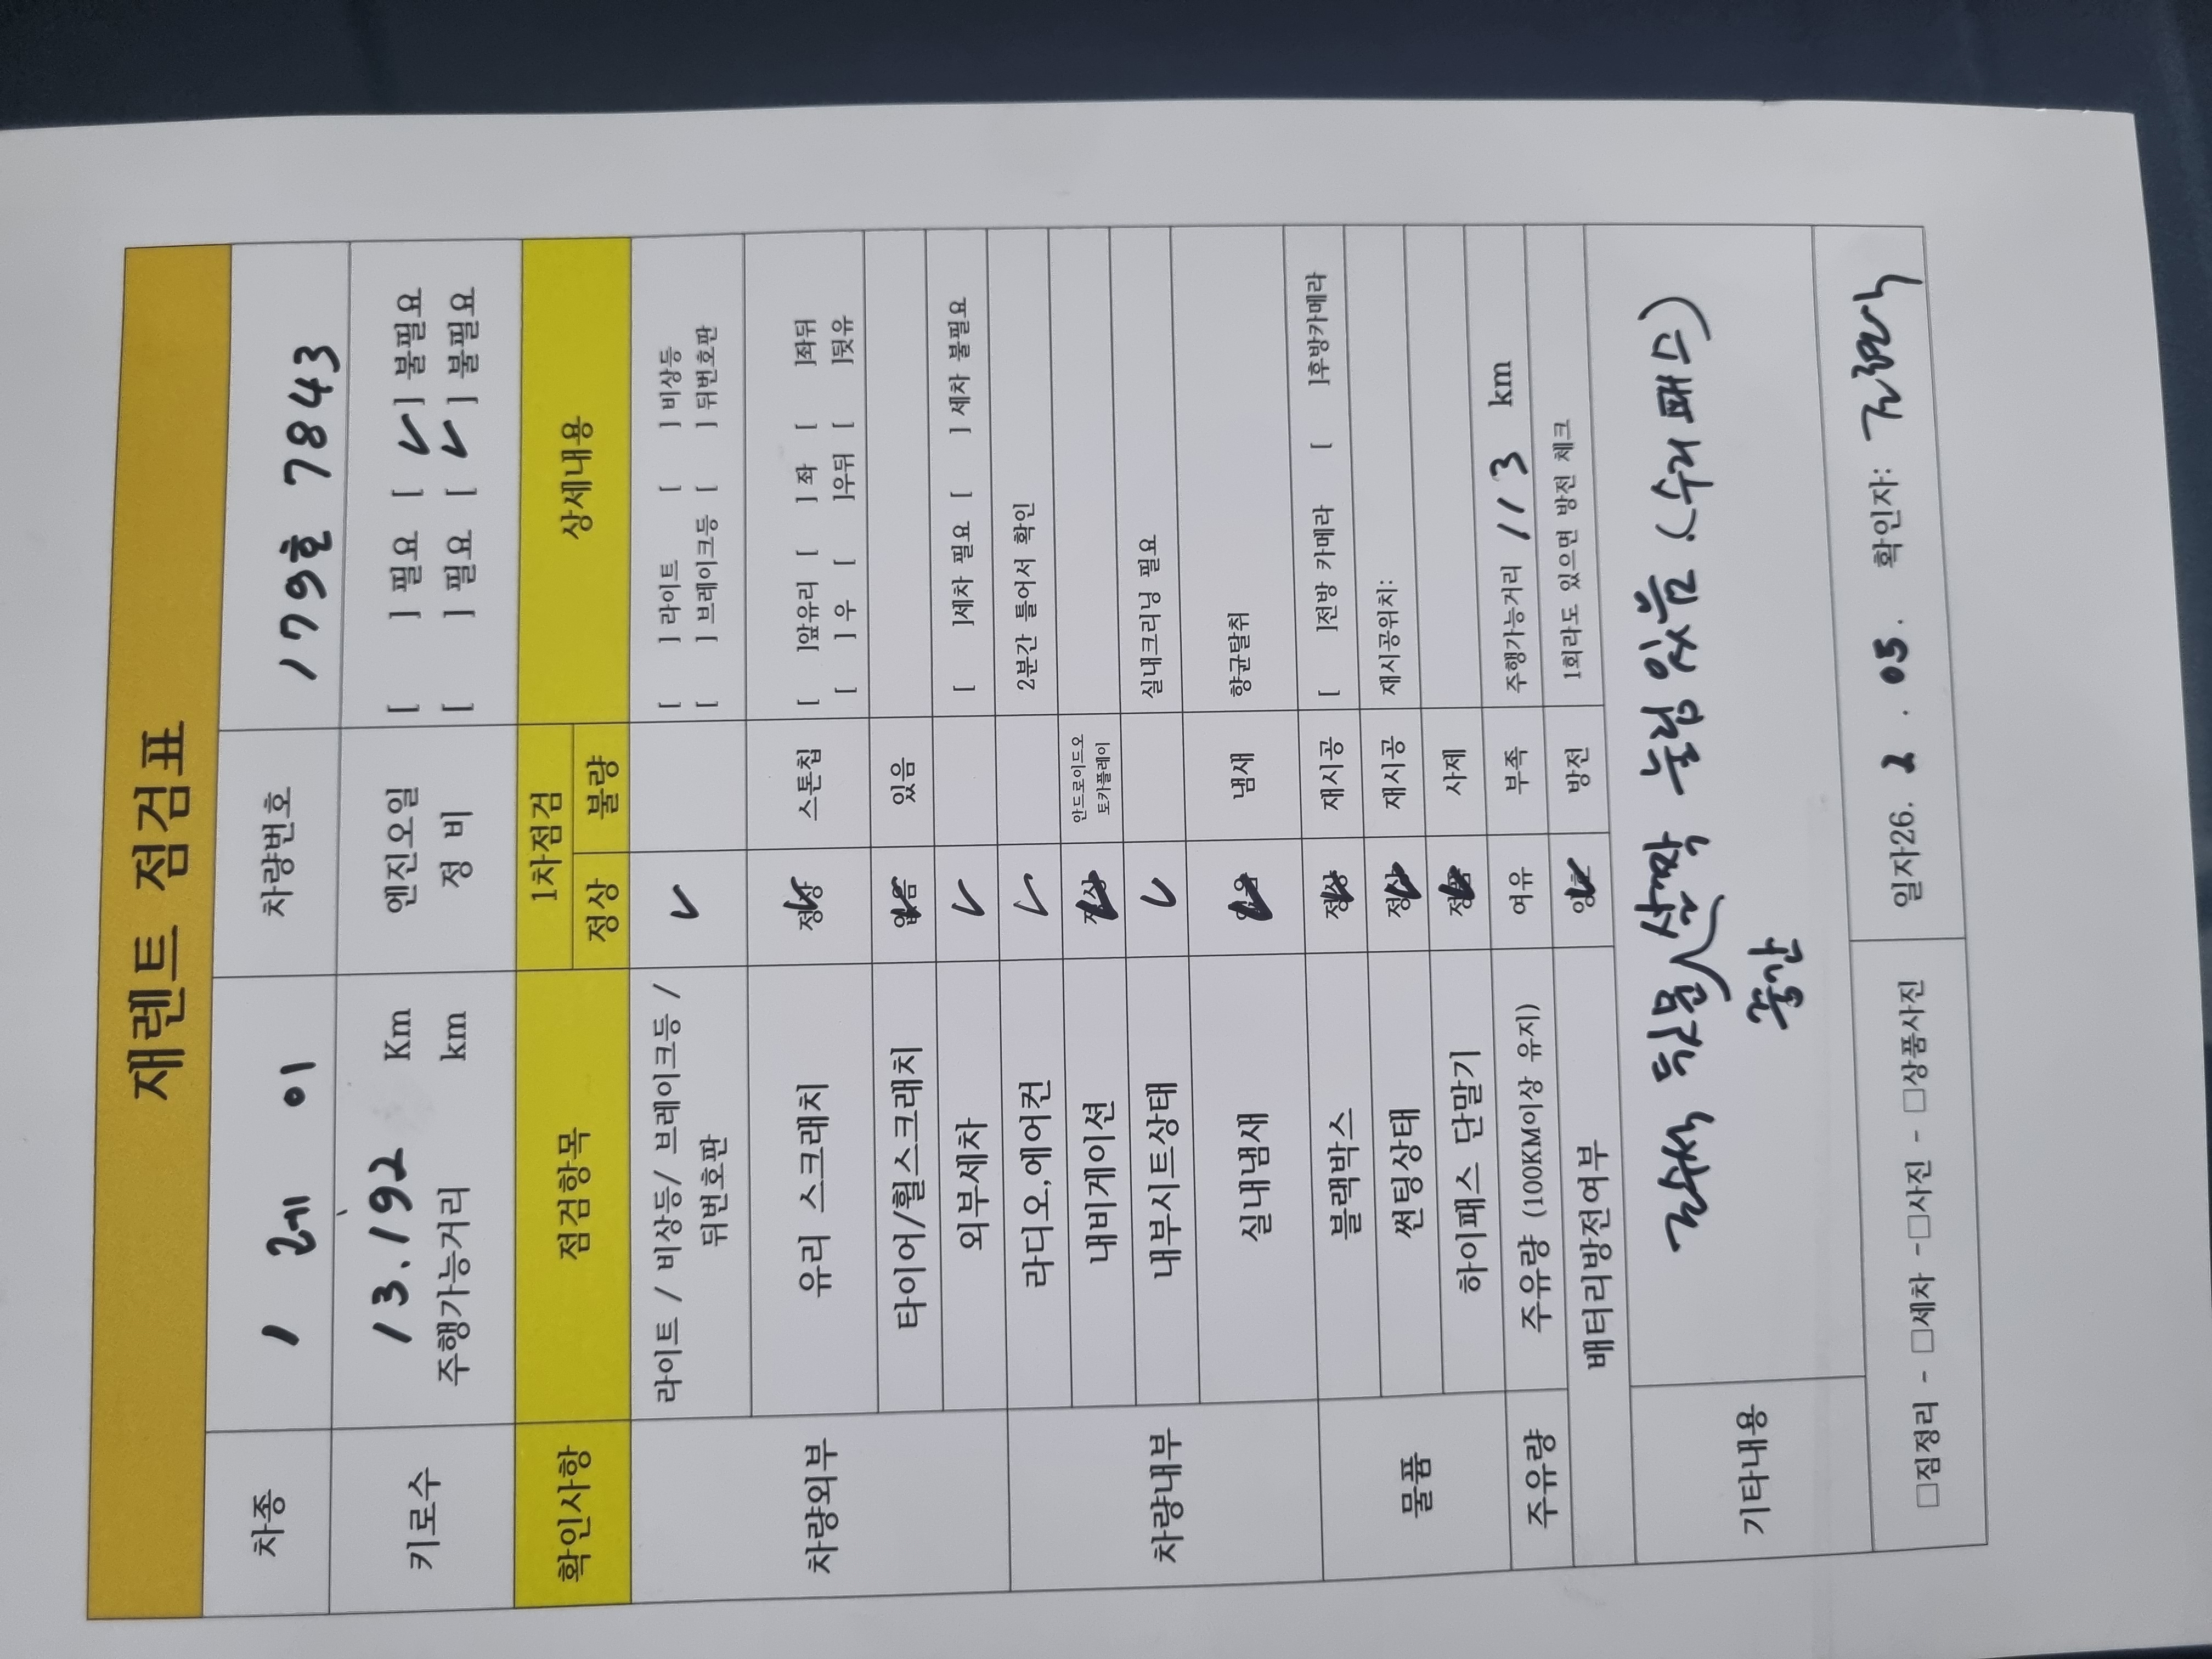 재렌트 점검표
차종 1 레 이 차량번호 179호 7843
키로수 13.192 Km 엔진오일 [ ] 필요 [ ✓ ] 불필요
주행가능거리 km 정 비 [ ] 필요 [ ✓ ] 불필요
확인사항 점검항목 1차점검 상세내용
정상 불량
차량외부 라이트 / 비상등/ 브레이크등 / 뒤번호판 ✓ [ ] 라이트 [ ] 비상등
[ ] 브레이크등 [ ] 뒤번호판
유리 스크래치 정상 ✓ 스톤칩 [ ]앞유리 [ ] 좌 [ ]좌뒤
[ ] 우 [ ]우뒤 [ ]뒷유
타이어/휠스크래치 없음 ✓ 있음
외부세차 ✓ [ ]세차 필요 [ ] 세차 불필요
차량내부 라디오,에어컨 ✓ 2분간 틀어서 확인
내비게이션 정상 ✓ 안드로이드오토카플레이
내부시트상태 ✓ 실내크리닝 필요
실내냄새 ✓ 냄새 향균탈취
물품 블랙박스 정상 ✓ 재시공 [ ]전방 카메라 [ ]후방카메라
썬팅상태 정상 ✓ 재시공 재시공위치:
하이패스 단말기 정품 ✓ 사제
주유량 주유량 (100KM이상 유지) 여유 부족 주행가능거리 113 km
배터리방전여부 양호 ✓ 방전 1회라도 있으면 방전 체크
기타내용 조수석 뒤문 살짝 눌림 있음 (수리패스)
중간
□짐정리 - □세차 -□사진 - □상품사진 일자26. 2 . 05. 확인자: